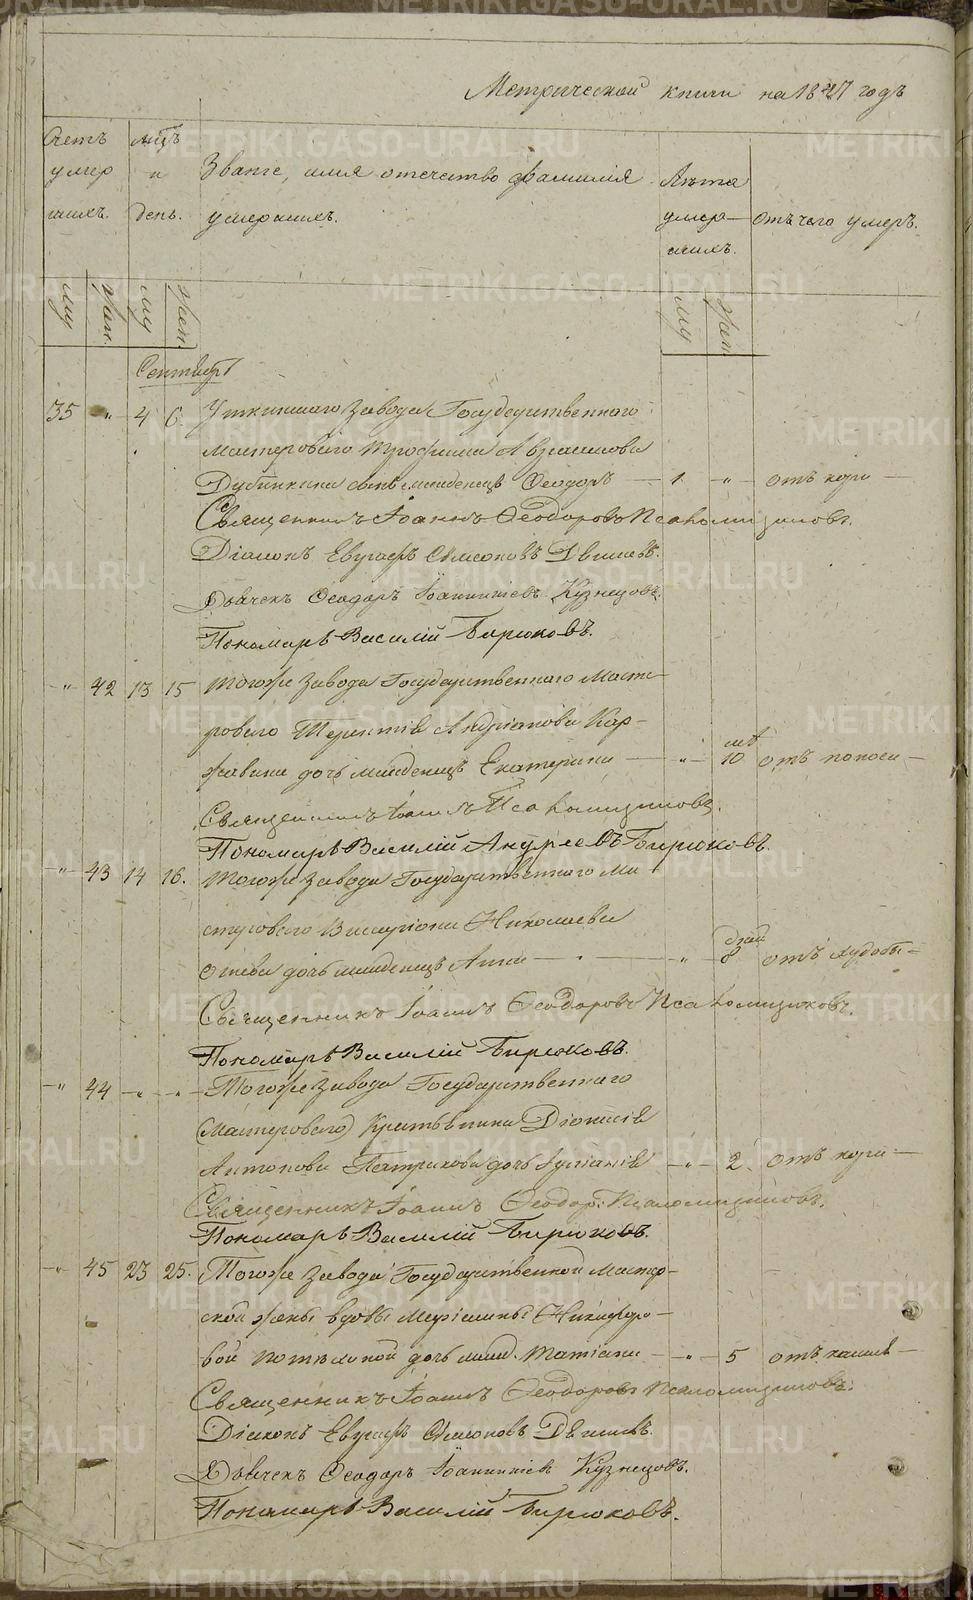 Метрической книги на 1847 годъ
Счетъ умер шихъ.
мцъ и день.
Званіе, имя отечество фамилія умершихъ.
Лѣта умер- шихъ.
отъ чего умеръ.
му жен. му жен. му жен
Сентябрь
35 " 4 6. Уткинскаго завода Государственнаго
мастероваго Трофима Авраамова
сынъ младенецъ Ѳеодоръ — 1. " отъ кори —
Священникъ Іоаннъ Ѳеодоровъ Псаломщиковъ.
Діаконъ Евграфъ Симеоновъ
Дьячекъ Ѳеодоръ Іоанникіевъ Кузнецовъ.
Пономарь Василій Бирюковъ.
" 42 13 15 Тогоже завода Государственнаго масте-
роваго Терентія Андріанова Кор-
жавина дочь младенецъ Екатерина — " 10 отъ поноса —
Священникъ Іоаннъ Псаломщиковъ.
Пономарь Василій Андреевъ Бирюковъ.
" 43 14 16. Тогоже завода Государственнаго ма
стероваго Виссаріона Николаева
дочь младенецъ Анна — " 8 дней отъ худобы —
Священникъ Іоаннъ Ѳеодоровъ Псаломщиковъ.
Пономарь Василій Бирюковъ.
" 44 " " Тогоже завода Государственнаго
(мастероваго) Діонисія
Антонова дочь Іуліанія — " — 2. отъ кори —
Священникъ Іоаннъ Ѳеодор: Псаломщиковъ.
Пономарь Василій Бирюковъ.
" 45 23 25. Тогоже завода Государственной мастер-
ской жены вдовы Никифоро-
вой дочь млад. Татіана — " — 5 отъ кашля —
Священникъ Іоаннъ Ѳеодоровъ Псаломщиковъ.
Діаконъ Евграфъ Симеоновъ
Дьячекъ Ѳеодоръ Іоанникіевъ Кузнецовъ.
Пономарь Василій Бирюковъ.
METRIKI.GASO-URAL.RU